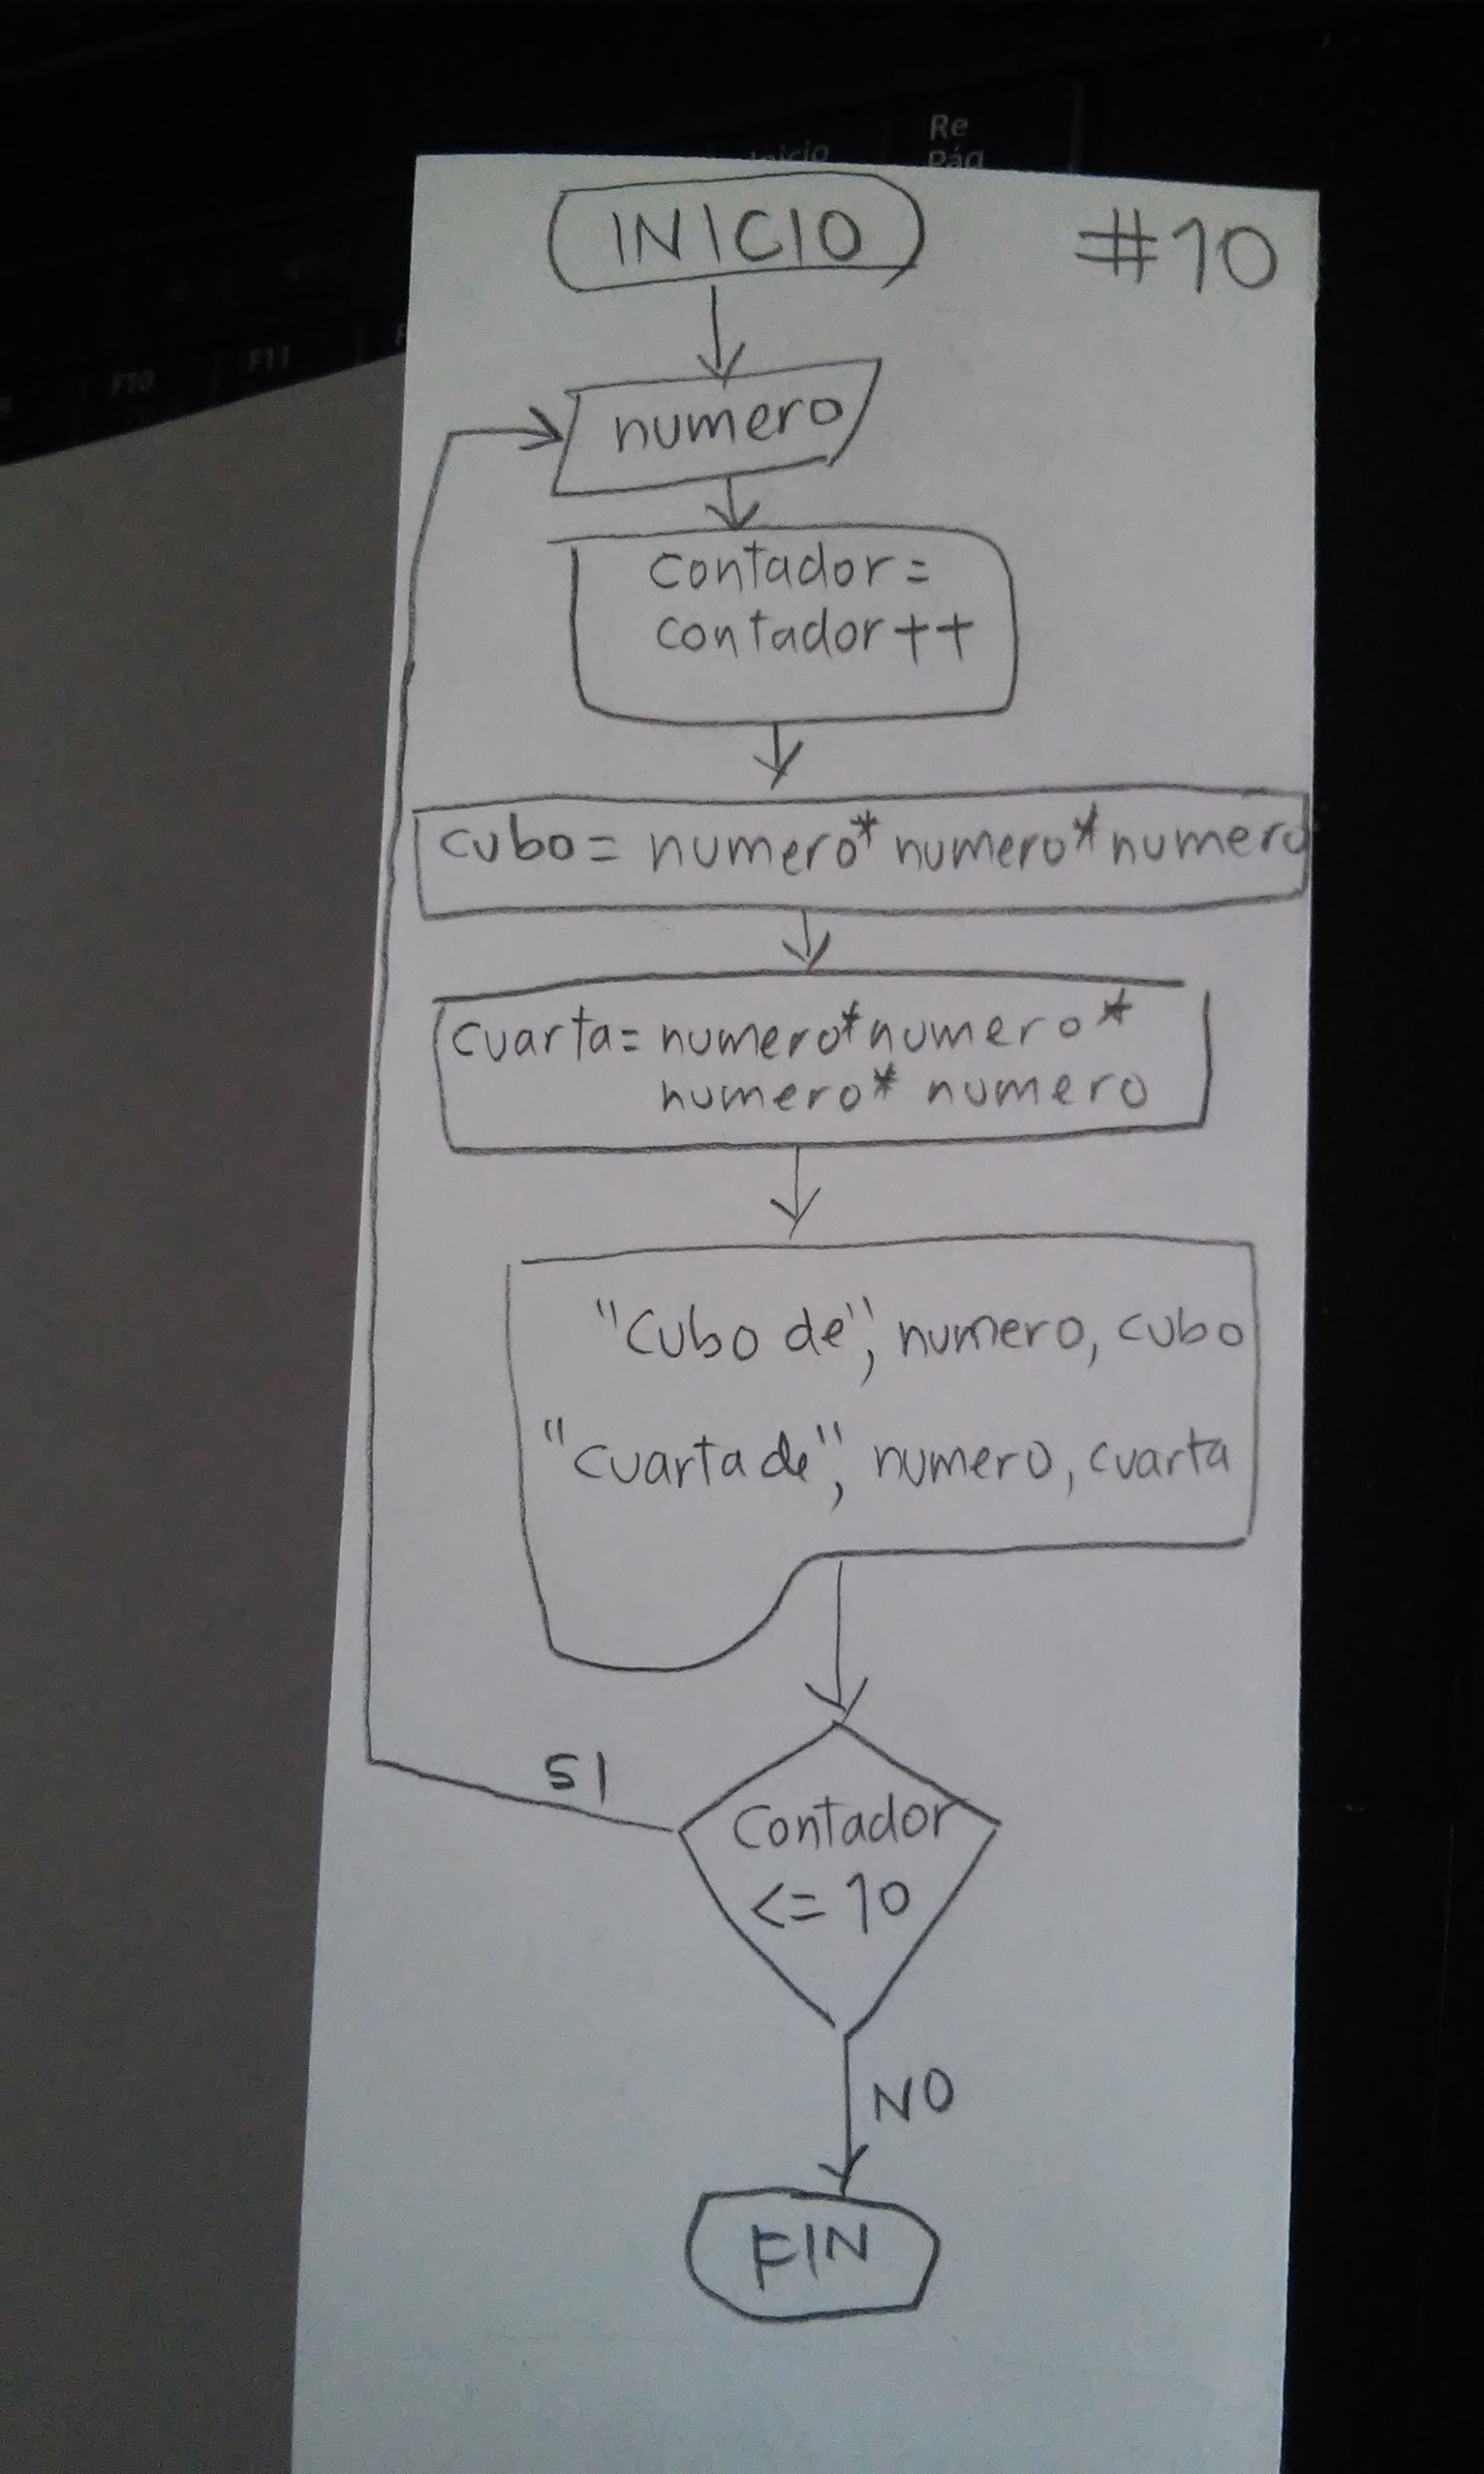 Inicio
Re
Pág
F10
F11
INICIO
#10
numero
contador=
contador++
cubo= numero*numero*numero
cuarta= numero*numero*
numero*numero
"Cubo de", numero, cubo
"Cuarta de", numero, cuarta
SI
Contador
<= 10
NO
FIN